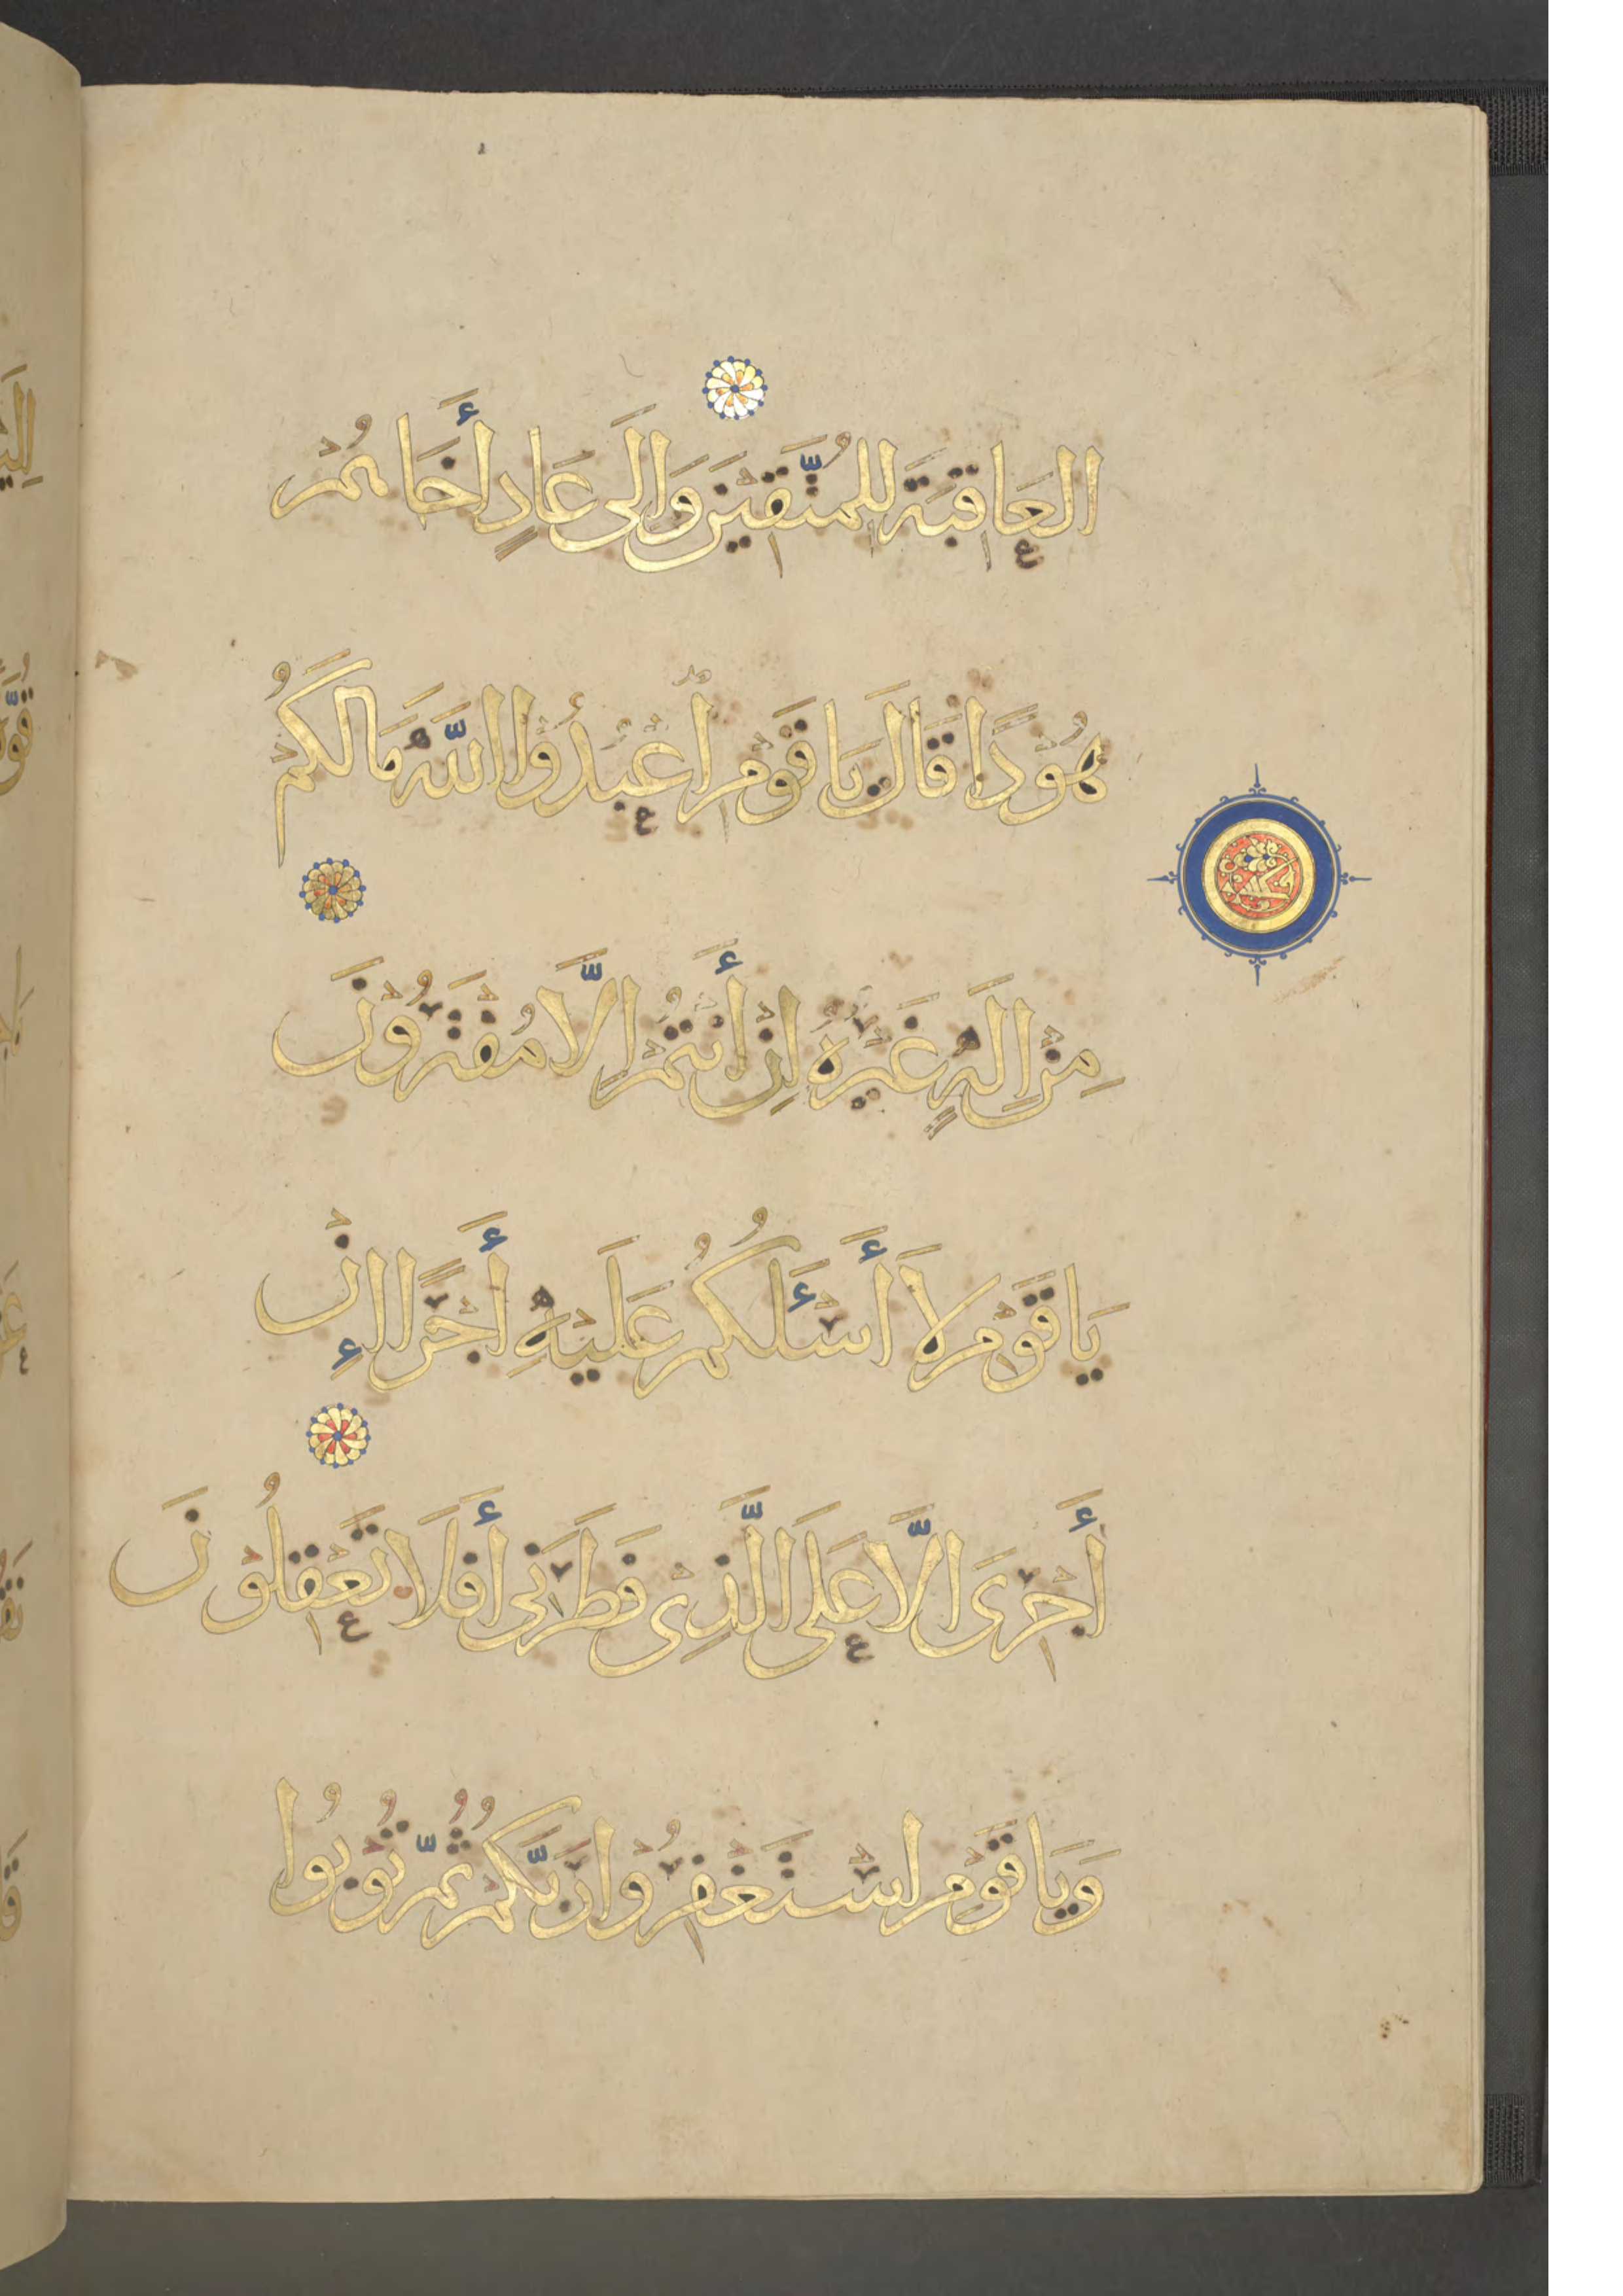 العَاقِبَةَ لِلمُتَّقِيْنَ وَالَى عَادٍ أَخَاهُمْ
هُوْدًا قَالَ يَا قَوْمِ اْعْبُدُوْا اللَّهَ مَا لَكُمْ
مِنْ اِلَهٍ غَيْرُهُ اِنْ أَنْتُمْ اِلَّا مُفْتَرُوْنَ
يَا قَوْمِ لَا أَسْئَلُكُمْ عَلَيْهِ أَجْرًا إِنْ
أَجْرِىَ الَّا عَلَى الَّذِى فَطَرَنِى أَفَلَا تَعْقِلُوْنَ
وَيَا قَوْمِ اسْتَغْفِرُوْا رَبَّكُمْ ثُمَّ تُوْبُوا